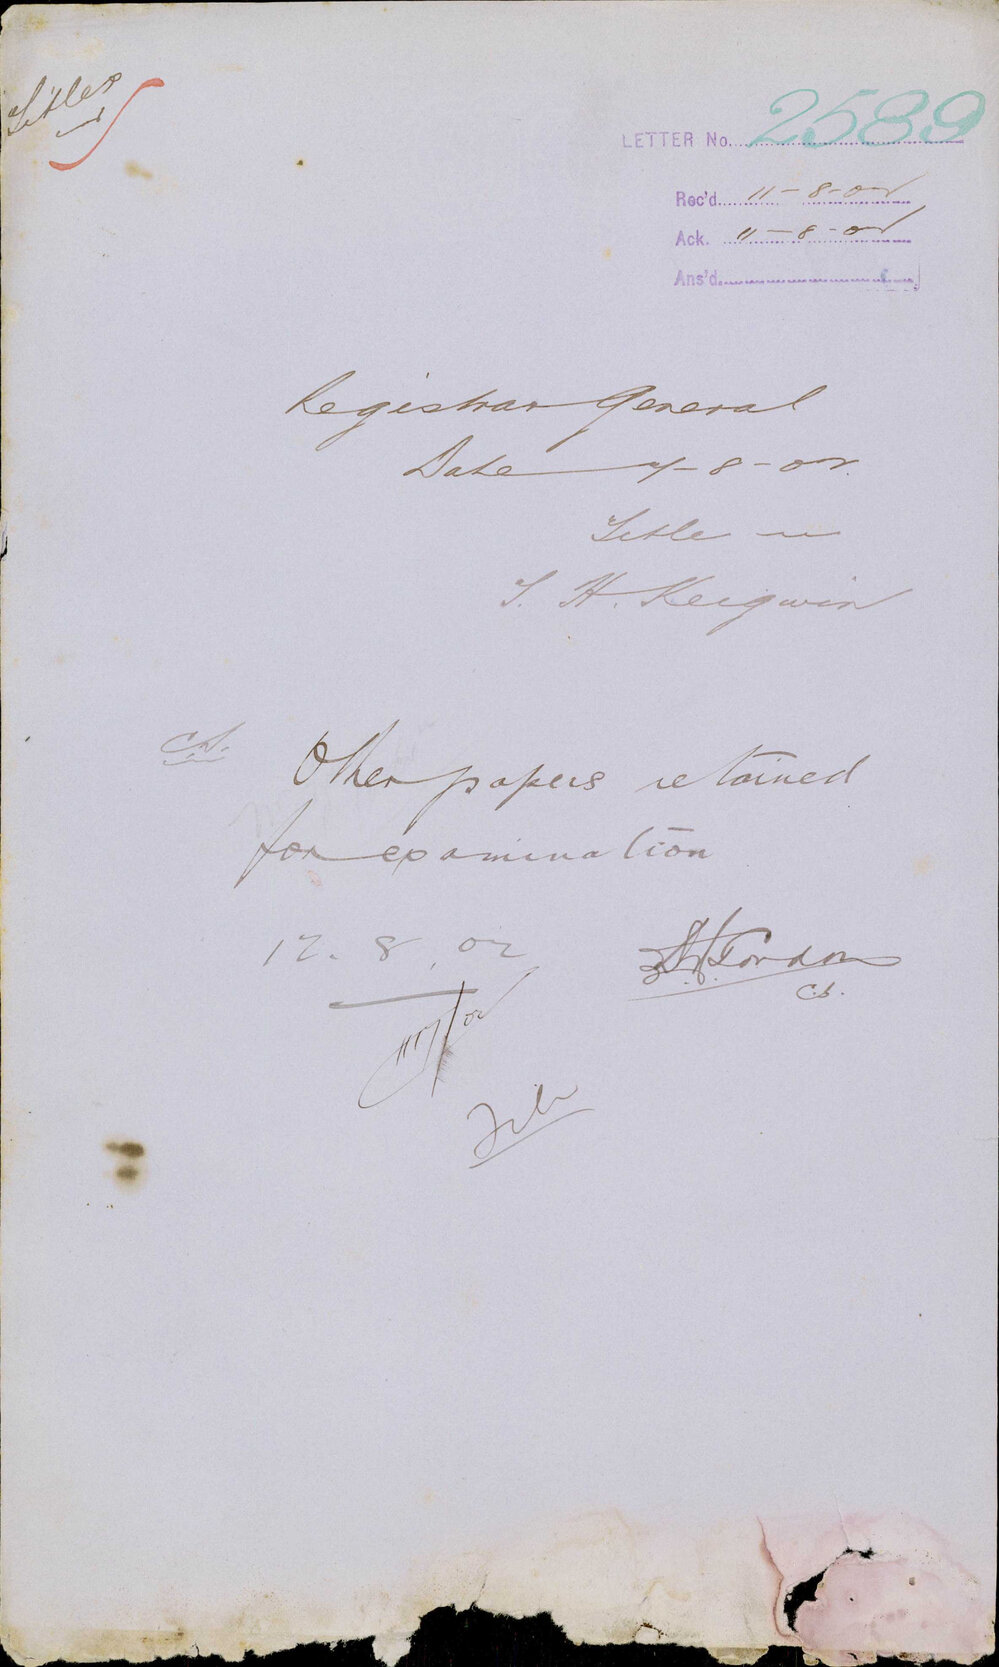 Titles
LETTER No. 2589
Rec'd. 11-8-02
Ack. 11-8-02
Ans'd.
Registrar General
Date 7-8-02.
Title in
T. H. Keigwin
C.S. Other papers retained
for examination
12.8.02 Gordon
C.S.
File